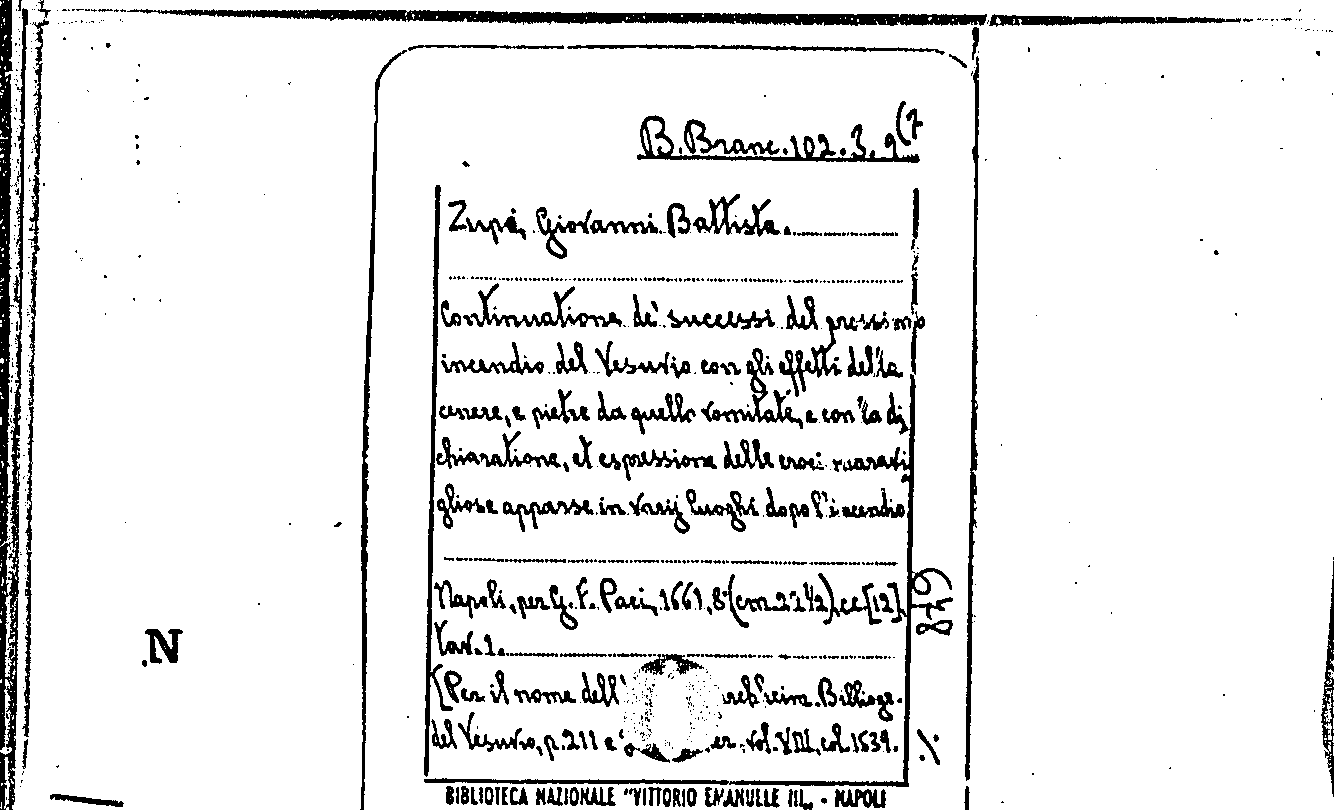 B. Branc. 102. 3. 9(7
Zupi, Giovanni Battista.
Continuatione de' successi del prossimo
incendio del Vesuvio con gli effetti della
cenere, e pietre da quello vomitate, e con la di
chiaratione, et espressione delle croci maravi
gliose apparse in varij luoghi dopo l'incendio
Napoli, per G. F. Paci, 1661, 8° (cm. 22 1/2), cc. [12],
tav. 1.
[Per il nome dell' Bibliogr.
del Vesuvio, p. 211 e vol. VIII, col. 1539.
649
N
BIBLIOTECA NAZIONALE "VITTORIO EMANUELLE III„ - NAPOLI